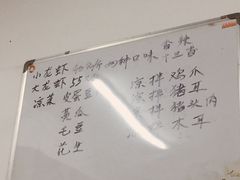 小龙虾 两种口味 香辣
大龙虾 十三香
凉菜 皮蛋豆
黄瓜
毛豆
花生
凉拌鸡爪
凉拌猪耳
凉拌猪头肉
木耳